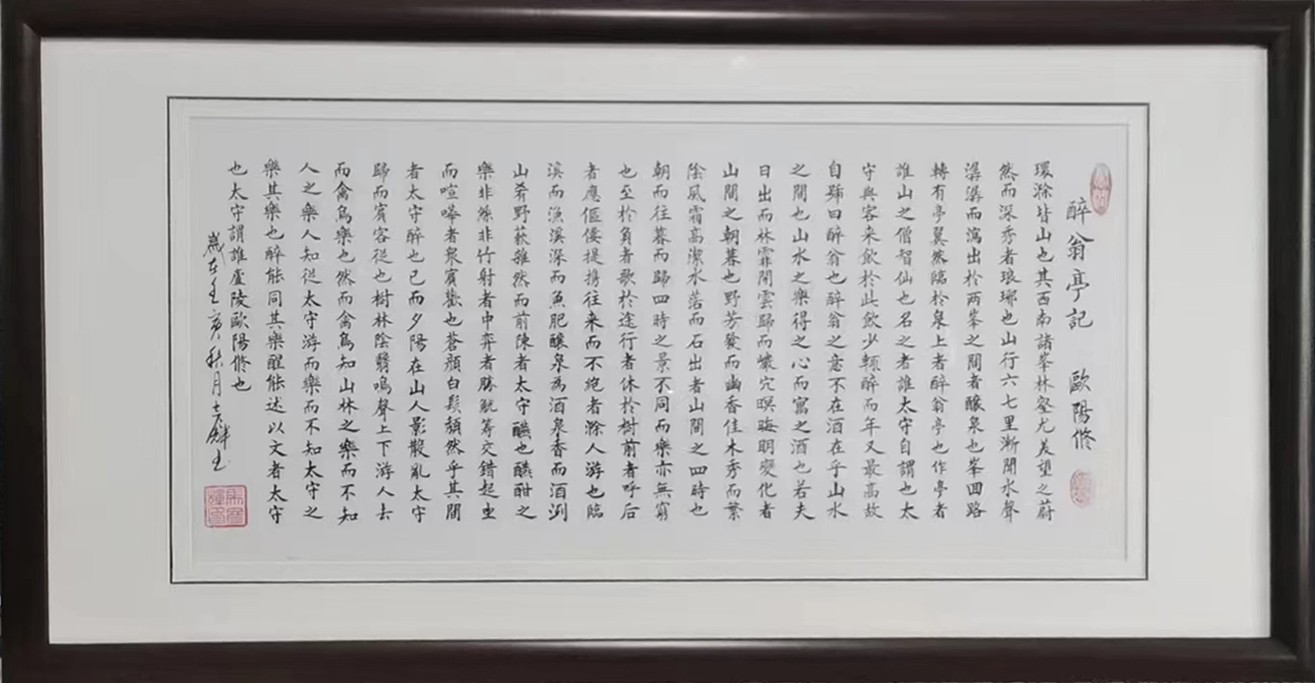 醉翁亭記 歐陽脩
環滁皆山也其西南諸峯林壑尤美望之蔚
然而深秀者琅琊也山行六七里漸聞水聲
潺潺而瀉出於两峯之間者釀泉也峯回路
轉有亭翼然臨於泉上者醉翁亭也作亭者
誰山之僧智仙也名之者誰太守自謂也太
守與客来飲於此飲少輒醉而年又最高故
自號曰醉翁也醉翁之意不在酒在乎山水
之間也山水之樂得之心而寓之酒也若夫
日出而林霏開雲歸而巖穴暝晦明變化者
山間之朝暮也野芳發而幽香佳木秀而繁
陰風霜高潔水落而石出者山間之四時也
朝而往暮而歸四時之景不同而樂亦無窮
也至於負者歌於途行者休於樹前者呼后
者應傴僂提携往来而不絶者滁人游也臨
溪而漁溪深而魚肥釀泉為酒泉香而酒洌
山肴野蔌雜然而前陳者太守醼也醼酣之
樂非絲非竹射者中弈者勝觥籌交錯起坐
而喧嘩者衆賓歡也蒼顔白髮頽然乎其間
者太守醉也已而夕陽在山人影散亂太守
歸而賓客從也樹林陰翳鳴聲上下游人去
而禽鳥樂也然而禽鳥知山林之樂而不知
人之樂人知從太守游而樂而不知太守之
樂其樂也醉能同其樂醒能述以文者太守
也太守謂誰廬陵歐陽脩也
歲在壬寅秋月